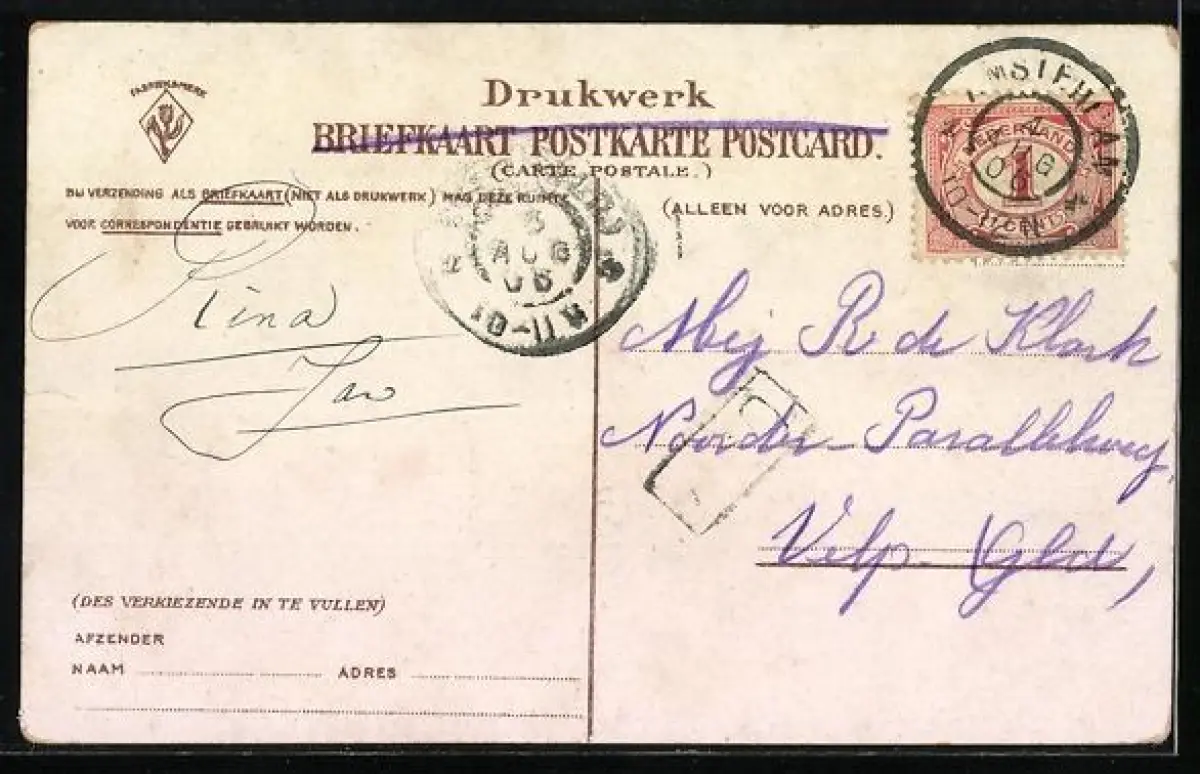 FABRIEKSMERK
Drukwerk
BRIEFKAART POSTKARTE POSTCARD.
(CARTE POSTALE.)
BIJ VERZENDING ALS BRIEFKAART (NIET ALS DRUKWERK) MAG DEZE RUIMTE
VOOR CORRESPONDENTIE GEBRUIKT WORDEN.
(ALLEEN VOOR ADRES.)
AMSTERDAM
4 AUG 06
10-11 N
NEDERLAND
1
CENT
5
AUG
06
10-11 V
Rina
Jan
Mej R de Klark
Noorder-Parallelweg,
Velp. (Gld),
(DES VERKIEZENDE IN TE VULLEN)
AFZENDER
NAAM
ADRES